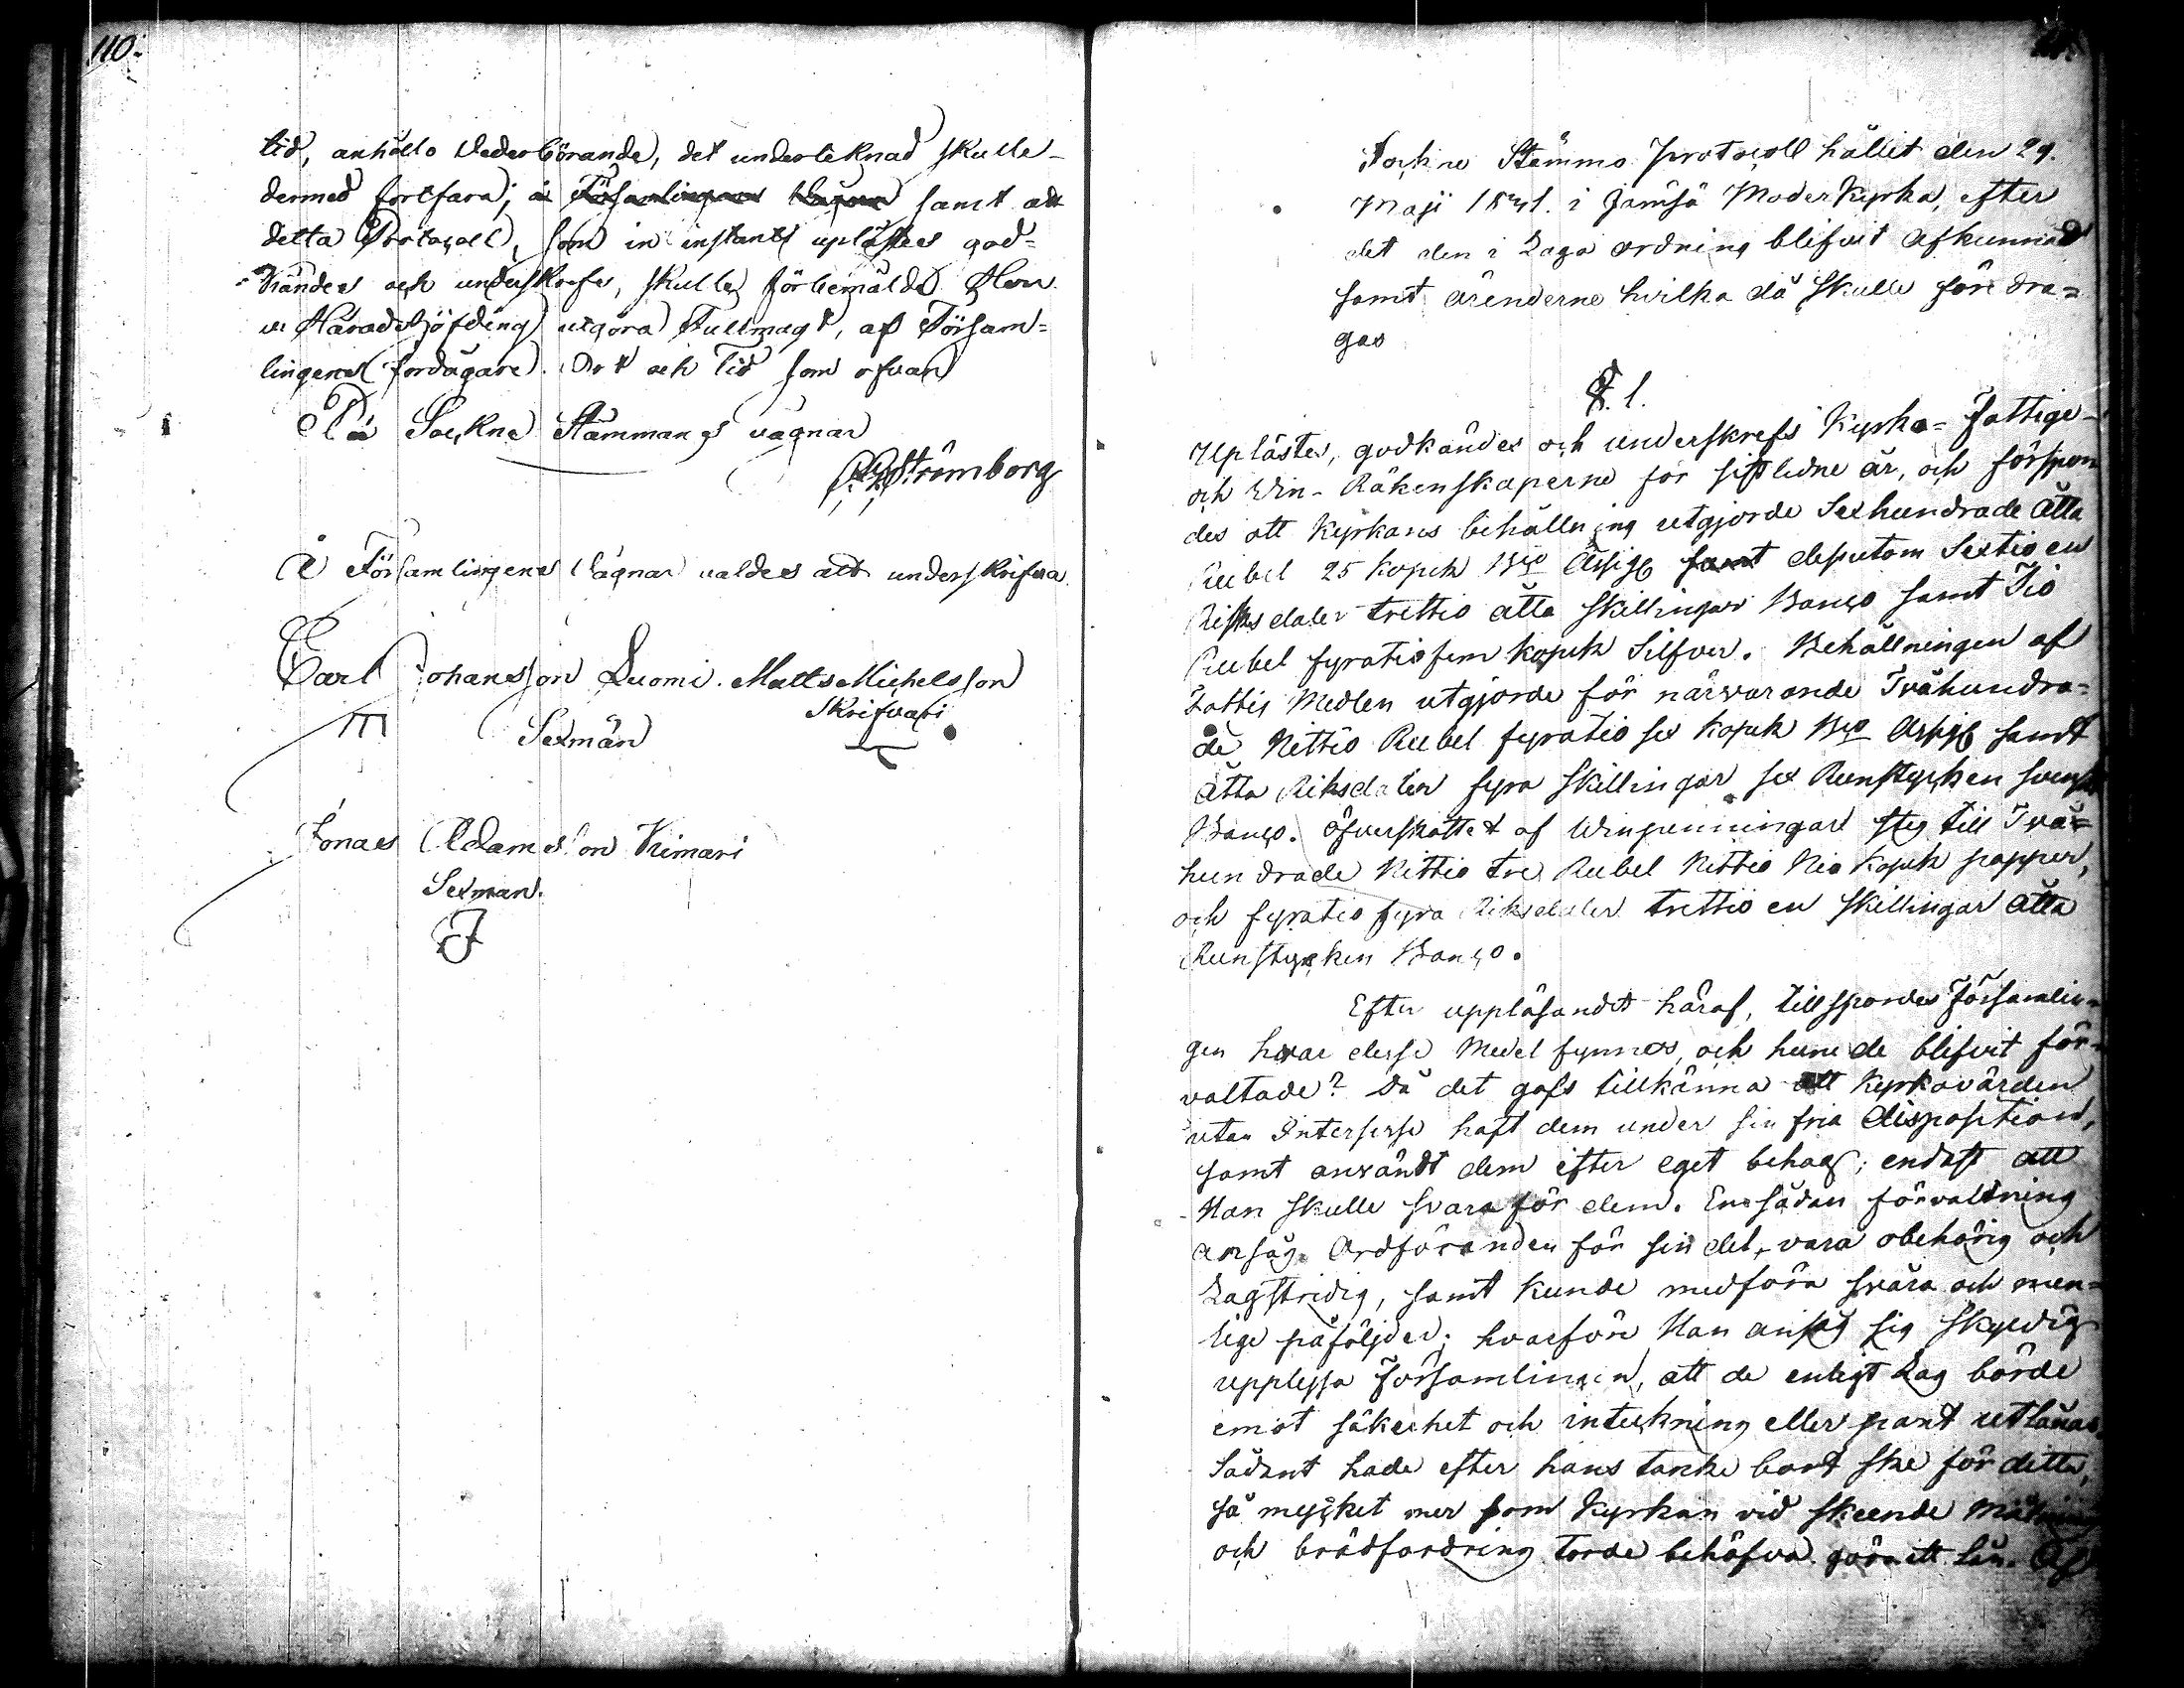 110.
tid, anhöllo Vederbörande, det underteknad skulle
dermed fortfara; å Församlingens Vägnar samt att
detta Protocoll, som in instanti uplästes god=
kändes och underskrefs, skulle förbemälde Herr
v. Häradshöfding utgöra Fullmagt, af Försam=
lingens fordägare. Ort och Tid som ofvan
På Sockne Stämmans vägnar
Strömborg
Å Församlingens Vägnar valdes att underskrifva
Carl Johansson Luomi. Matts Michelsson
Sexmän Skrifvari
Jonas Adamsson Kimari
Sexman.
Sockne Stämmo Protocoll hållit den 29.
Maji 1841. i Jämsä Moderkyrka, efter
det den i Laga ordning blifvit afkunnad
samt ärenderne hvilka då skulle före dra=
gas
§. 1.
Uplästes, godkändes och underskrefs Kyrko= Fattige-
och Vin- Räkenskaperne för sistledne år, och förspor
des att Kyrkans behållning utgjorde Sexhundrade Åtta
Rubel 25 kopek Bco Assig samt desutom Sextio en
Riksdaler trettio åtta skillingar Banco samt Tio
Rubel fyratiofem kopek Silfver. Behållningen af
Fattig Medlen utgjorde för närvarande Tvåhundra=
de Nittio Rubel fyratio sex kopek Bco Assig samt
Åtta Riksdaler fyra skillingar sex Runstycken svensk
Banco. Öfverskottet af Vinpenningar steg till Två=
hundrade Nittio tre Rubel Nittio Nio kopek papper,
och fyratio fyra Riksdaler trettio en skillingar åtta
Runstycken Banco.
Efter uppläsandet häraf, tillspordes Församlin=
gen hvar desse Medel funnos, och huru de blifvit för=
valtade? Då det gafs tillkänna att Kyrkovärden
utan Interesse haft dem under sin fria disposition,
samt användt dem efter eget behag; endast att
Han skulle svara för dem. En sådan förvaltning
ansåg Ordföranden för sin del, vara obehörig och
Lagstridig, samt kunde medföra svåra och men=
lige påföljder; hvarföre Han ansåg sig skyldig
upplysa Församlingen, att de enligt Lag borde
emot säkerhet och inteckning eller pant utlånas.
Sådant hade efter hans tanke bort ske för detta,
så mycket mer som Kyrkan vid skeende
och brådfordring torde behöfva göra ett lån. Af